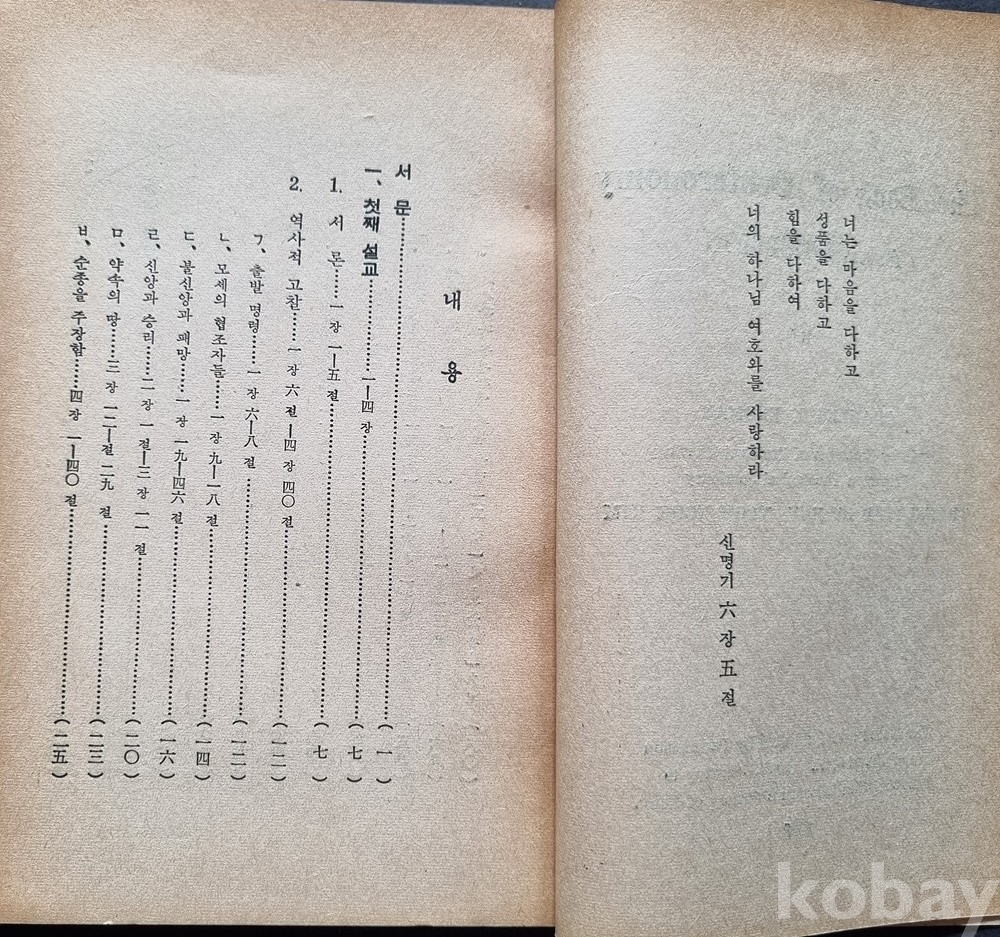 너는 마음을 다하고
성품을 다하고
힘을 다하여
너의 하나님 여호와를 사랑하라
신명기 六 장 五 절
내 용
서 문……(一)
一、첫째 설교……一—四 장……(七)
1. 서 론……一 장 一—五 절……(七)
2. 역사적 고찰……一 장 六 절—四 장 四〇 절……(一二)
ㄱ、출발 명령……一 장 六—八 절……(一二)
ㄴ、모세의 협조자들……一 장 九—一八 절……(一四)
ㄷ、불신앙과 패망……一 장 一九—四六 절……(一六)
ㄹ、신앙과 승리……二 장 一 절—三 장 一一 절……(二〇)
ㅁ、약속의 땅……三 장 一二—절 二九 절……(二三)
ㅂ、순종을 주장함……四 장 一—四〇 절……(二五)
kobay